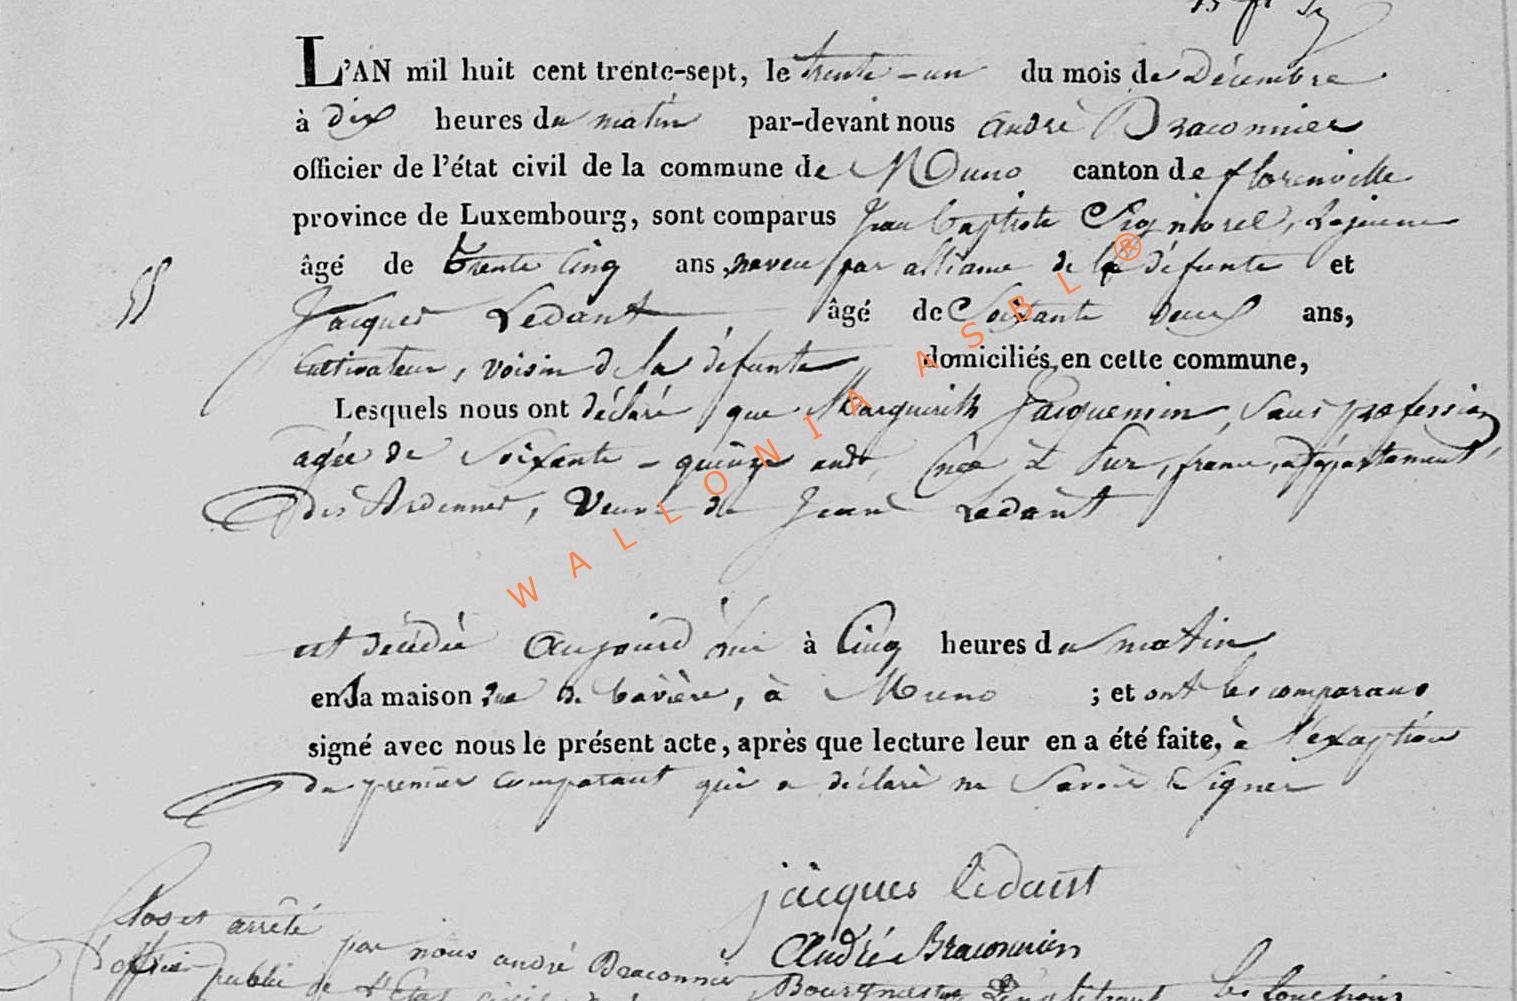 L'AN mil huit cent trente-sept, le trente-un du mois de Décembre
à dix heures du matin par-devant nous andré Braconnier
officier de l'état civil de la commune de Muno canton de florenville
province de Luxembourg, sont comparus Jean baptiste
âgé de trente Cinq ans, neveu par alliance de la défunte et
55
Jacques Ledant âgé de Soixante deux ans,
Cultivateur, voisin de la défunte domiciliés en cette commune,
Lesquels nous ont déclaré que Marguerith Jacquemin, Sans profession
agée de Soixante-quinze ans, née à Pur, france, département
des Ardennes, Veuve de Jean Ledant
est décédée Aujourd'hui à Cinq heures du matin
en la maison rue de bavière, à Muno ; et ont les comparans
signé avec nous le présent acte, après que lecture leur en a été faite, à l'exception
du premier comparant qui a déclaré ne Savoir Signer
jacques lédant
Clos et arrêté par nous andré Braconnier
André Braconnier
l'officier public de l'Etat civil
Bourgmestre
WALLONIA ASBL ®